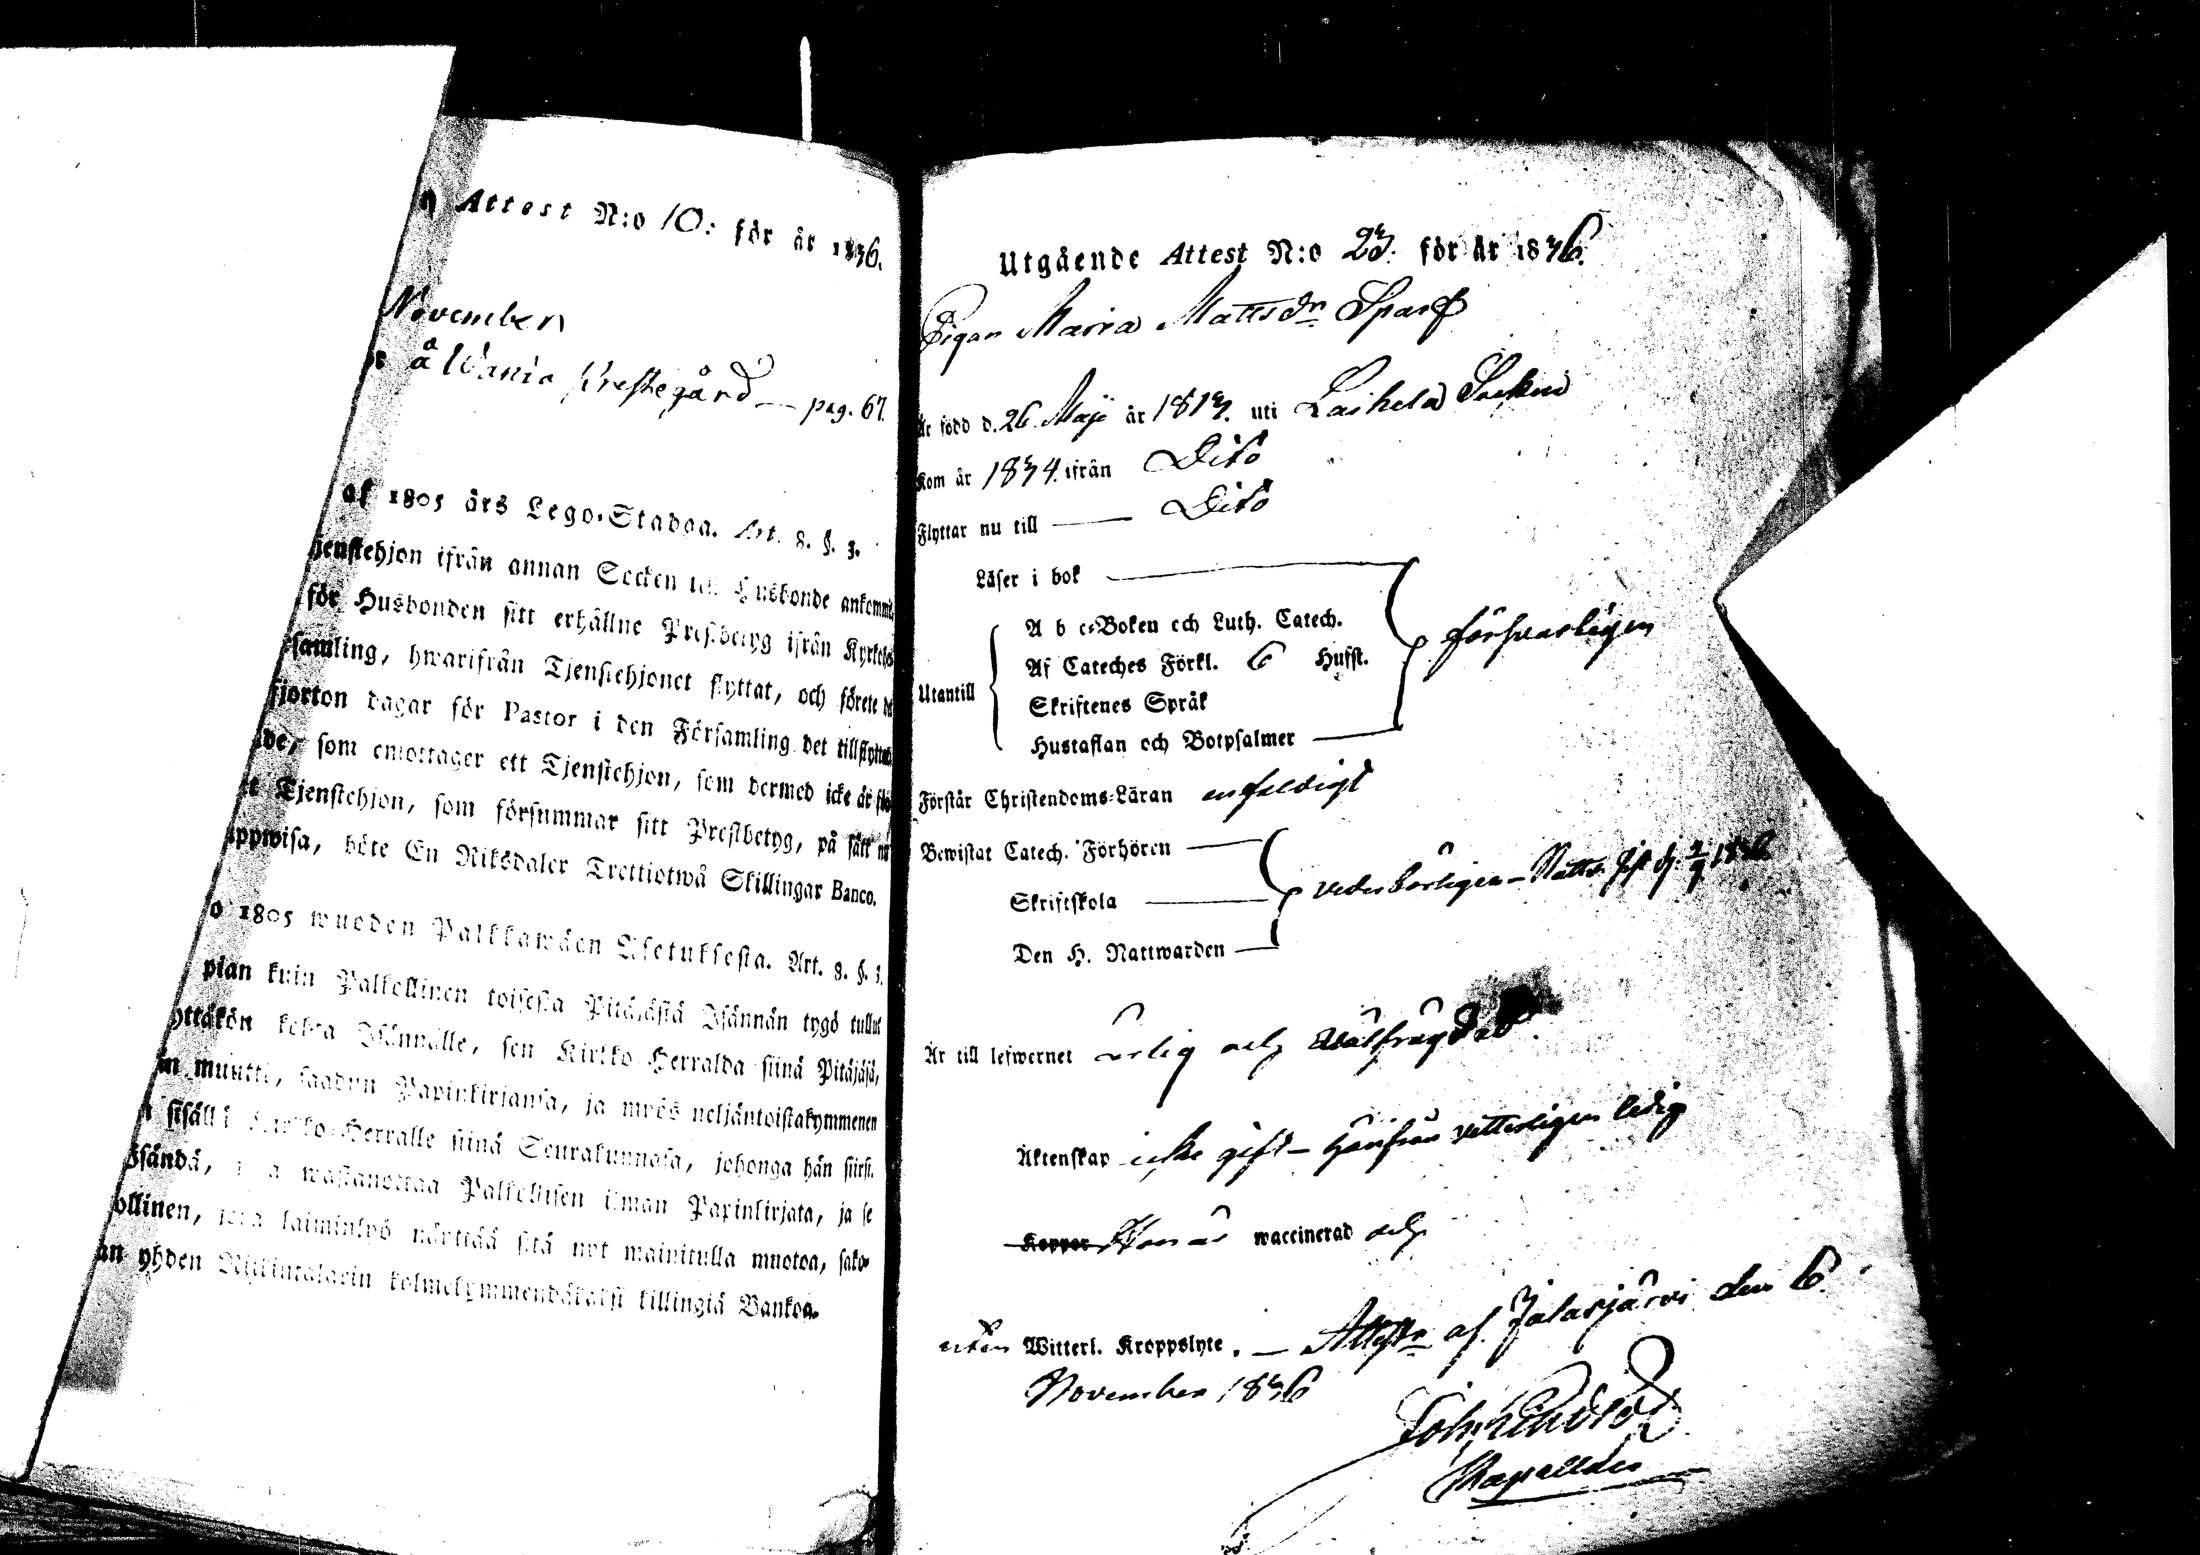 Attest N:o 10: för år 1836.
November
å Wania Prestegård — pag. 67.
af 1805 års Lego-Stadga. Art. 8. §. 3.
jenstehjon ifrån annan Socken till Husbonde ankommit
för Husbonden sitt erhållne Prestbetyg ifrån Kyrkoh
samling, hwarifrån Tjenstehjonet flyttat, och förete d
fjorton dagar för Pastor i den Församling det tillflytt
de, som emottager ett Tjenstehjon, som dermed icke är
Tjenstehjon, som försummar sitt Prestbetyg, på sätt
uppwisa, böte En Riksdaler Trettiotwå Skillingar Banco.
o 1805 wuoden Palkkawäen Asetuksesta. Art. 8. §. 3.
pian kuin Palkollinen toisesta Pitäjästä Isännän tygö tullut
yttäköön kohta Isännälle, sen Kirkko-Herralda siinä Pitäjäsä,
muutti, saadun Papinkirjansa, ja myös neljäntoistakymmenen
sisällä Kirkko-Herralle siinä Seurakunnasa, johonga hän siirsi.
Isändä, joka wastanottaa Palkollisen ilman Papinkirjata, ja se
ollinen, joka laiminlyö näyttää sitä nyt mainitulla muotoa, sako-
an yhden Riikintalarin kolmekymmendäkaksi killingiä Bankoa.
Utgående Attest N:o 23. för år 1836.
Pigan Maria Mattsdr Sparf
Är född d. 26 Maji år 1813. uti Laihela Socken
Kom år 1834. ifrån Dito
Flyttar nu till — Dito
Läser i bok
A b c-Boken och Luth. Catech.
försvarligen
Af Cateches Förkl. 6 Hufst.
Utantill
Skriftenes Språk
Hustaflan och Botpsalmer
Förstår Christendoms-Läran enfaldigt
Bewistat Catech. Förhören
Skriftskola
vederbörligen – Nattv. 1836
Den H. Nattwarden
Är till lefwernet ärlig och wälfrägdad
Äktenskap icke gift – härifrån vetterligen ledig
Koppor Hon är waccinerad och
utan Witterl. Kroppslyte. — Attestr af Jalasjärvi den 6.
November 1836
Kapellan